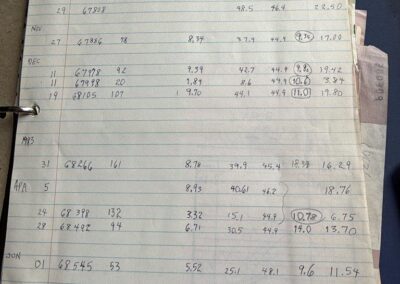 29 67808 98.5 46.4 22.50
NOV
27 67886 78 8.34 37.9 44.9 17.00
DEC
11 67978 92 9.39 42.7 44.9 9.8 19.42
11 67998 20 1.89 8.6 44.9 10.6 3.84
19 68105 107 9.70 44.1 44.9 11.0 19.80
1983
31 68266 161 8.78 39.9 45.4 16.29
APR 5 8.93 40.61 46.2 18.76
24 68398 132 3.32 15.1 44.9 10.78 6.75
28 68492 94 6.71 30.5 44.9 14.0 13.70
JUN
01 68545 53 5.52 25.1 48.1 9.6 11.54